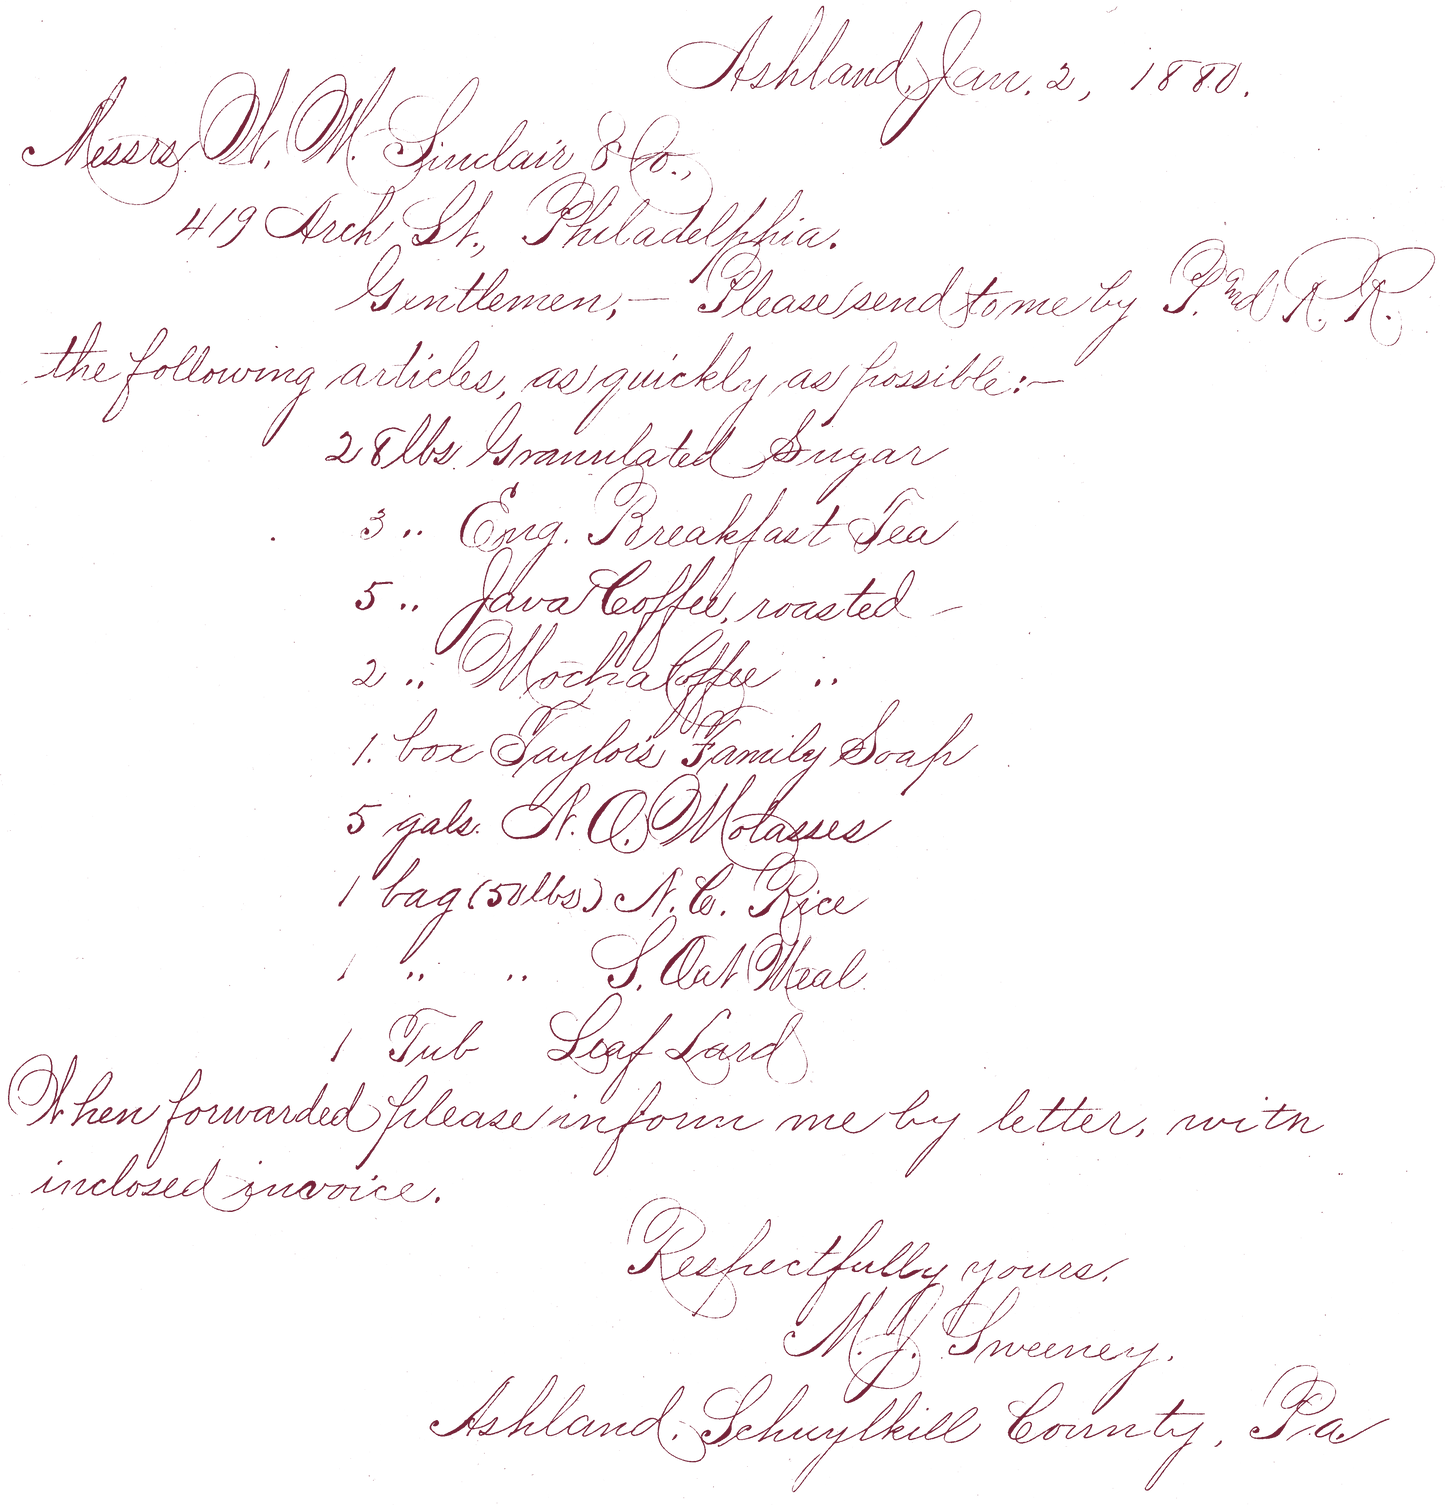 Ashland, Jan. 2, 1880.
Messrs. W. M. Sinclair & Co.,
419 Arch St., Philadelphia.
Gentlemen,— Please send to me by P. and R. R.
the following articles, as quickly as possible:—
28 lbs. Granulated Sugar
3 " Eng. Breakfast Tea
5 " Java Coffee, roasted —
2 " Mocha Coffee "
1. box Taylor's Family Soap
5 gals. N. O. Molasses
1 bag (50 lbs.) N. C. Rice
1 " " S. Oat Meal.
1 Tub Leaf Lard
When forwarded please inform me by letter, with
inclosed invoice.
Respectfully yours,
M. J. Sweeney.
Ashland, Schuylkill County, Pa